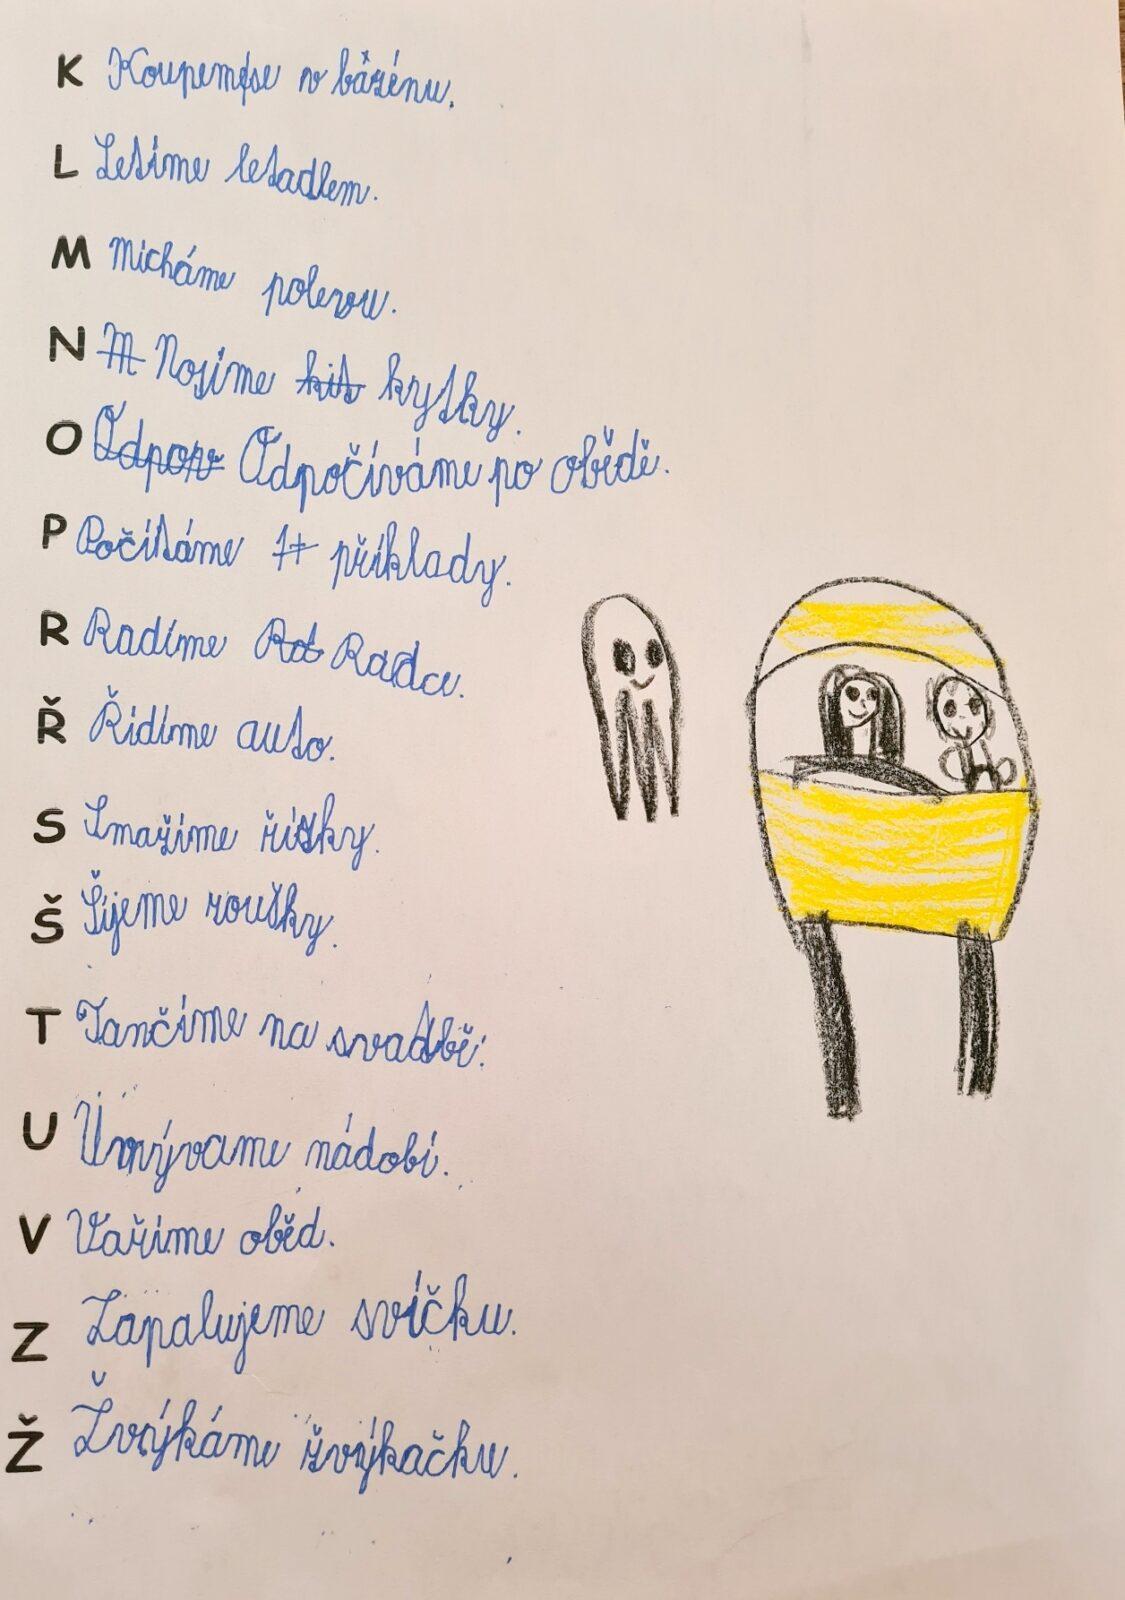 K Koupeme se v bázénu.
L Letíme letadlem.
M Micháme polevou.
N M Nosíme kit kytky.
O Odpov Odpočíváme po obědě.
P Počítáme 1+ příklady.
R Radíme Rad Radce.
Ř Řídíme auto.
S Smažíme řízky.
Š Šijeme roušky.
T Tančíme na svadbě.
U Umývame nádobí.
V Vaříme oběd.
Z Zapalujeme svíčku.
Ž Žvýkáme žvýkačku.